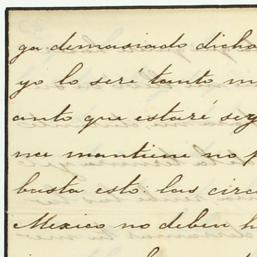 ga demasiado dicho
yo lo seré tanto m
anto que estaré seg
me mantiene no p
basta esto: las circ
Mexico no deben h